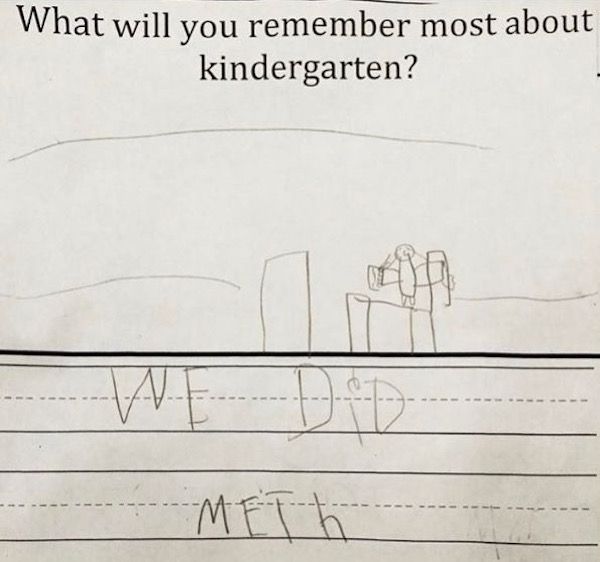 What will you remember most about
kindergarten?
WE DiD
METh